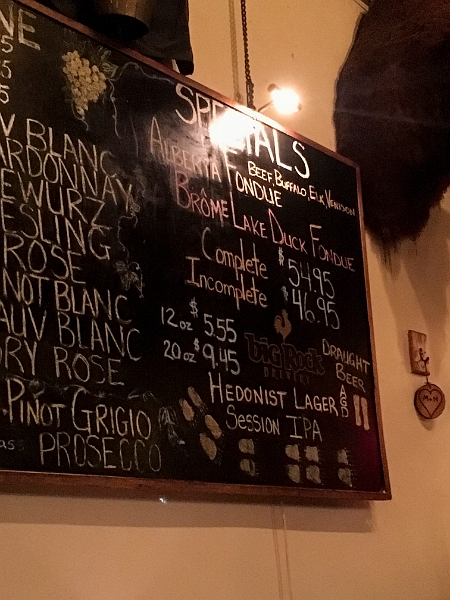 NE
5
5
5
V BLANC
ARDONNAY
EWURZ
ESLING
ROSE
NOT BLANC
AUV BLANC
DRY ROSE
PINOT GRIGIO
PROSECCO
SPECIALS
ALBERTA FONDUE
BEEF, BUFFALO, ELK, VENISON
BRÔME LAKE DUCK FONDUE
Complete $54.95
Incomplete $46.95
12oz $5.55
20oz $9.45
big Rock
DRAUGHT
BEER
HEDONIST LAGER
SESSION IPA
M+M